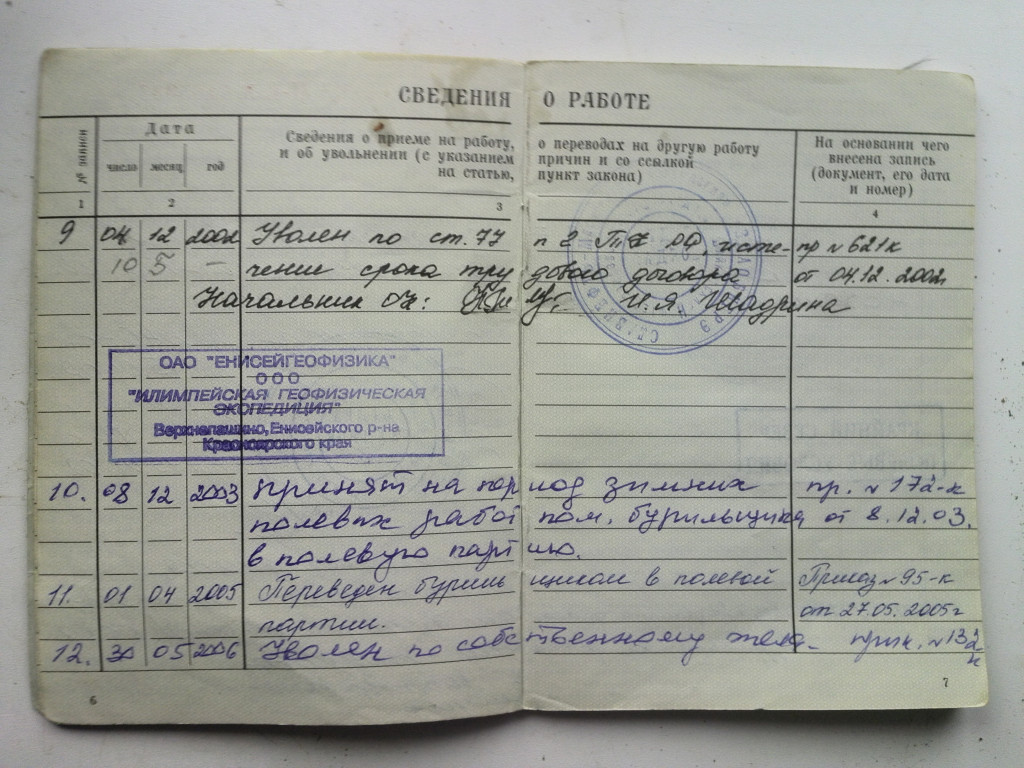 СВЕДЕНИЯ О РАБОТЕ
№ записи
Дата
число месяц год
Сведения о приеме на работу, о переводах на другую работу
и об увольнении (с указанием причин и со ссылкой
на статью, пункт закона)
На основании чего
внесена запись
(документ, его дата
и номер)
1 2 3 4
9 04 12 2002 Уволен по ст. 77 п 2 ТК РФ, исте- пр №621к
10 5 — чение срока трудового договора от 04.12.2002
Начальник ОК: И.Я. Шадрина
ОАО "ЕНИСЕЙГЕОФИЗИКА"
ООО
"ИЛИМПЕЙСКАЯ ГЕОФИЗИЧЕСКАЯ
ЭКСПЕДИЦИЯ"
Верхнепашино, Енисейского р-на
Красноярского края
10. 08 12 2003 принят на период зимних пр. №172-к
полевых работ пом. бурильщика от 8.12.03.
в полевую партию.
11. 01 04 2005 Переведен бурильщиком в полевой Приказ №95-к
партии. от 27.05.2005г
12. 30 05 2006 Уволен по собственному жела- прик. №132-
к
6 7